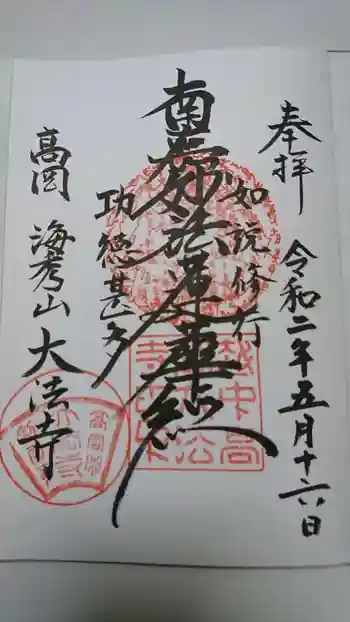 奉拝
令和二年五月十六日
如説修行
南無妙法蓮華経
功徳甚多
高岡 海老山 大法寺